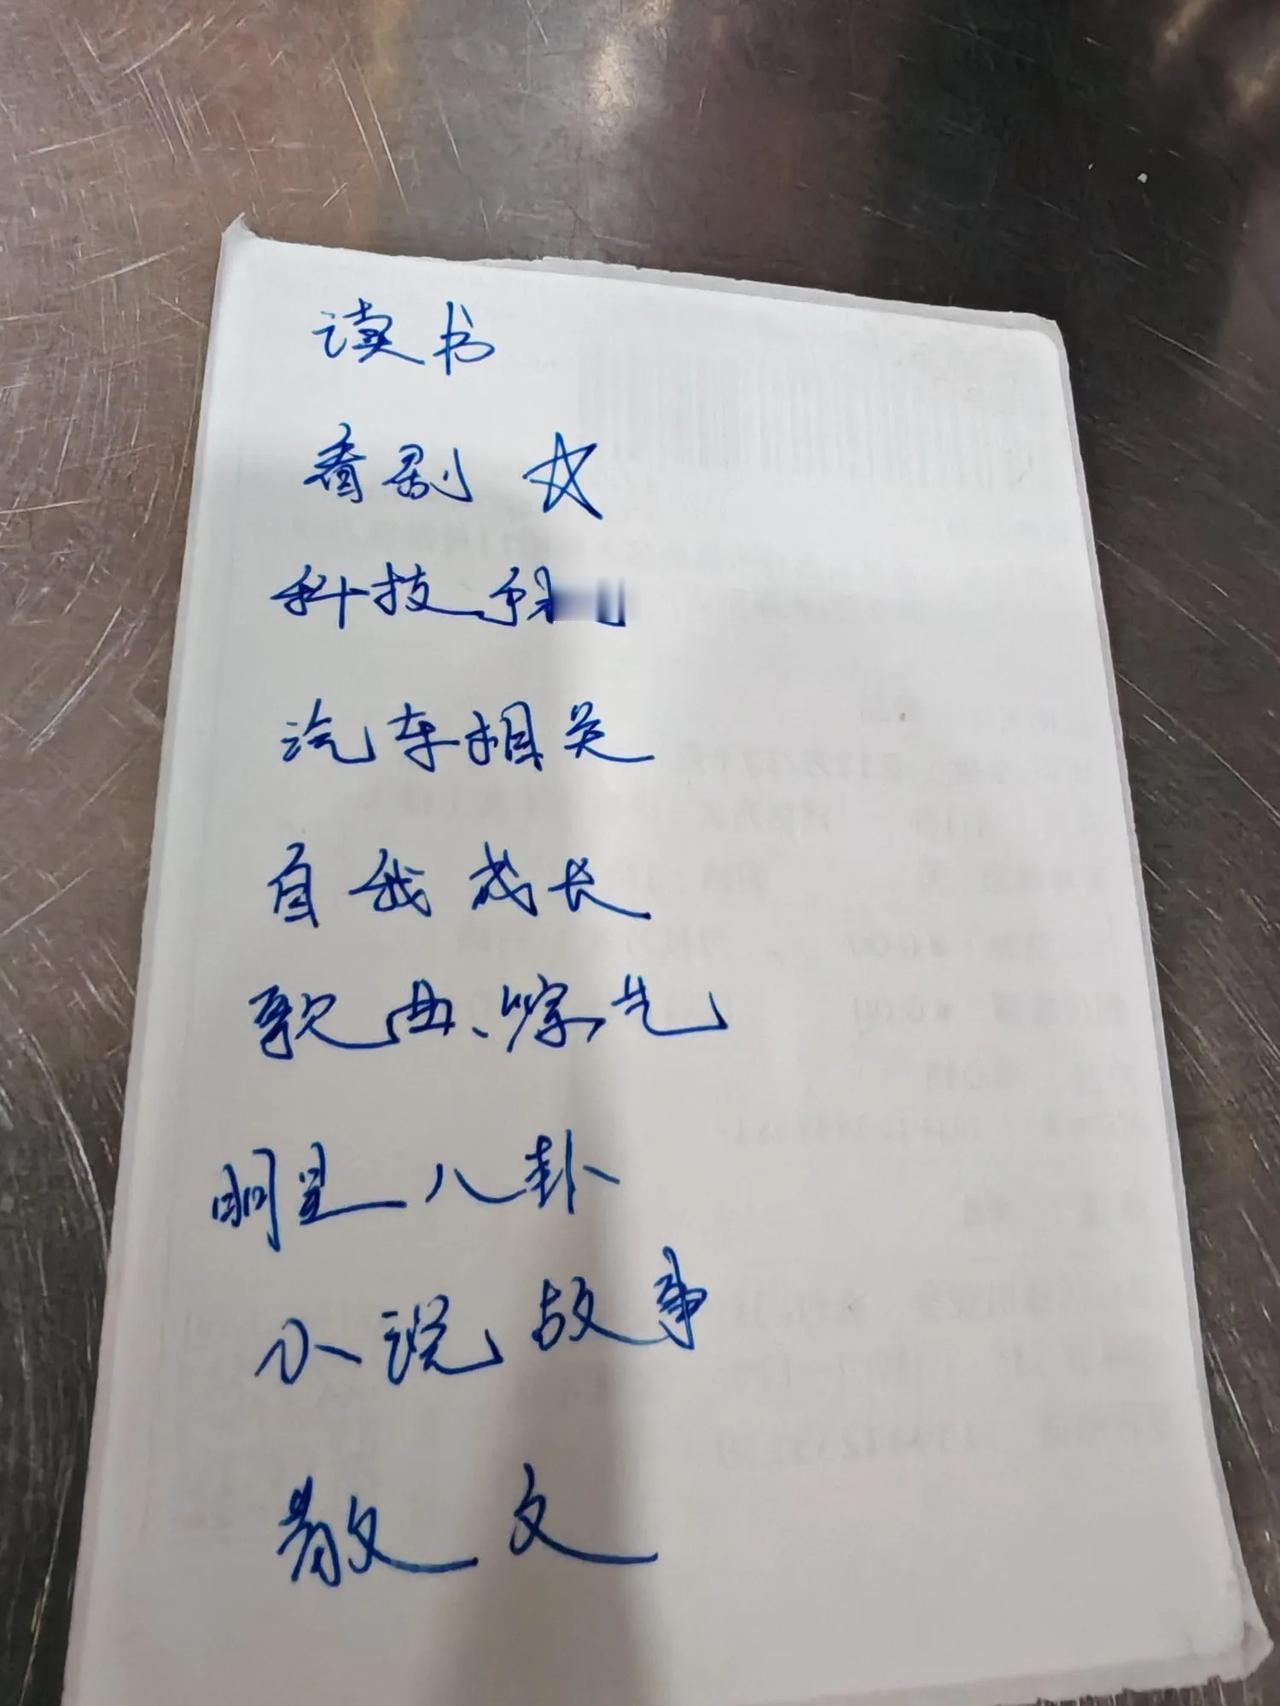 读书
看剧 ☆
科技手机
汽车相关
自我成长
歌曲、综艺
明星八卦
小说故事
散文